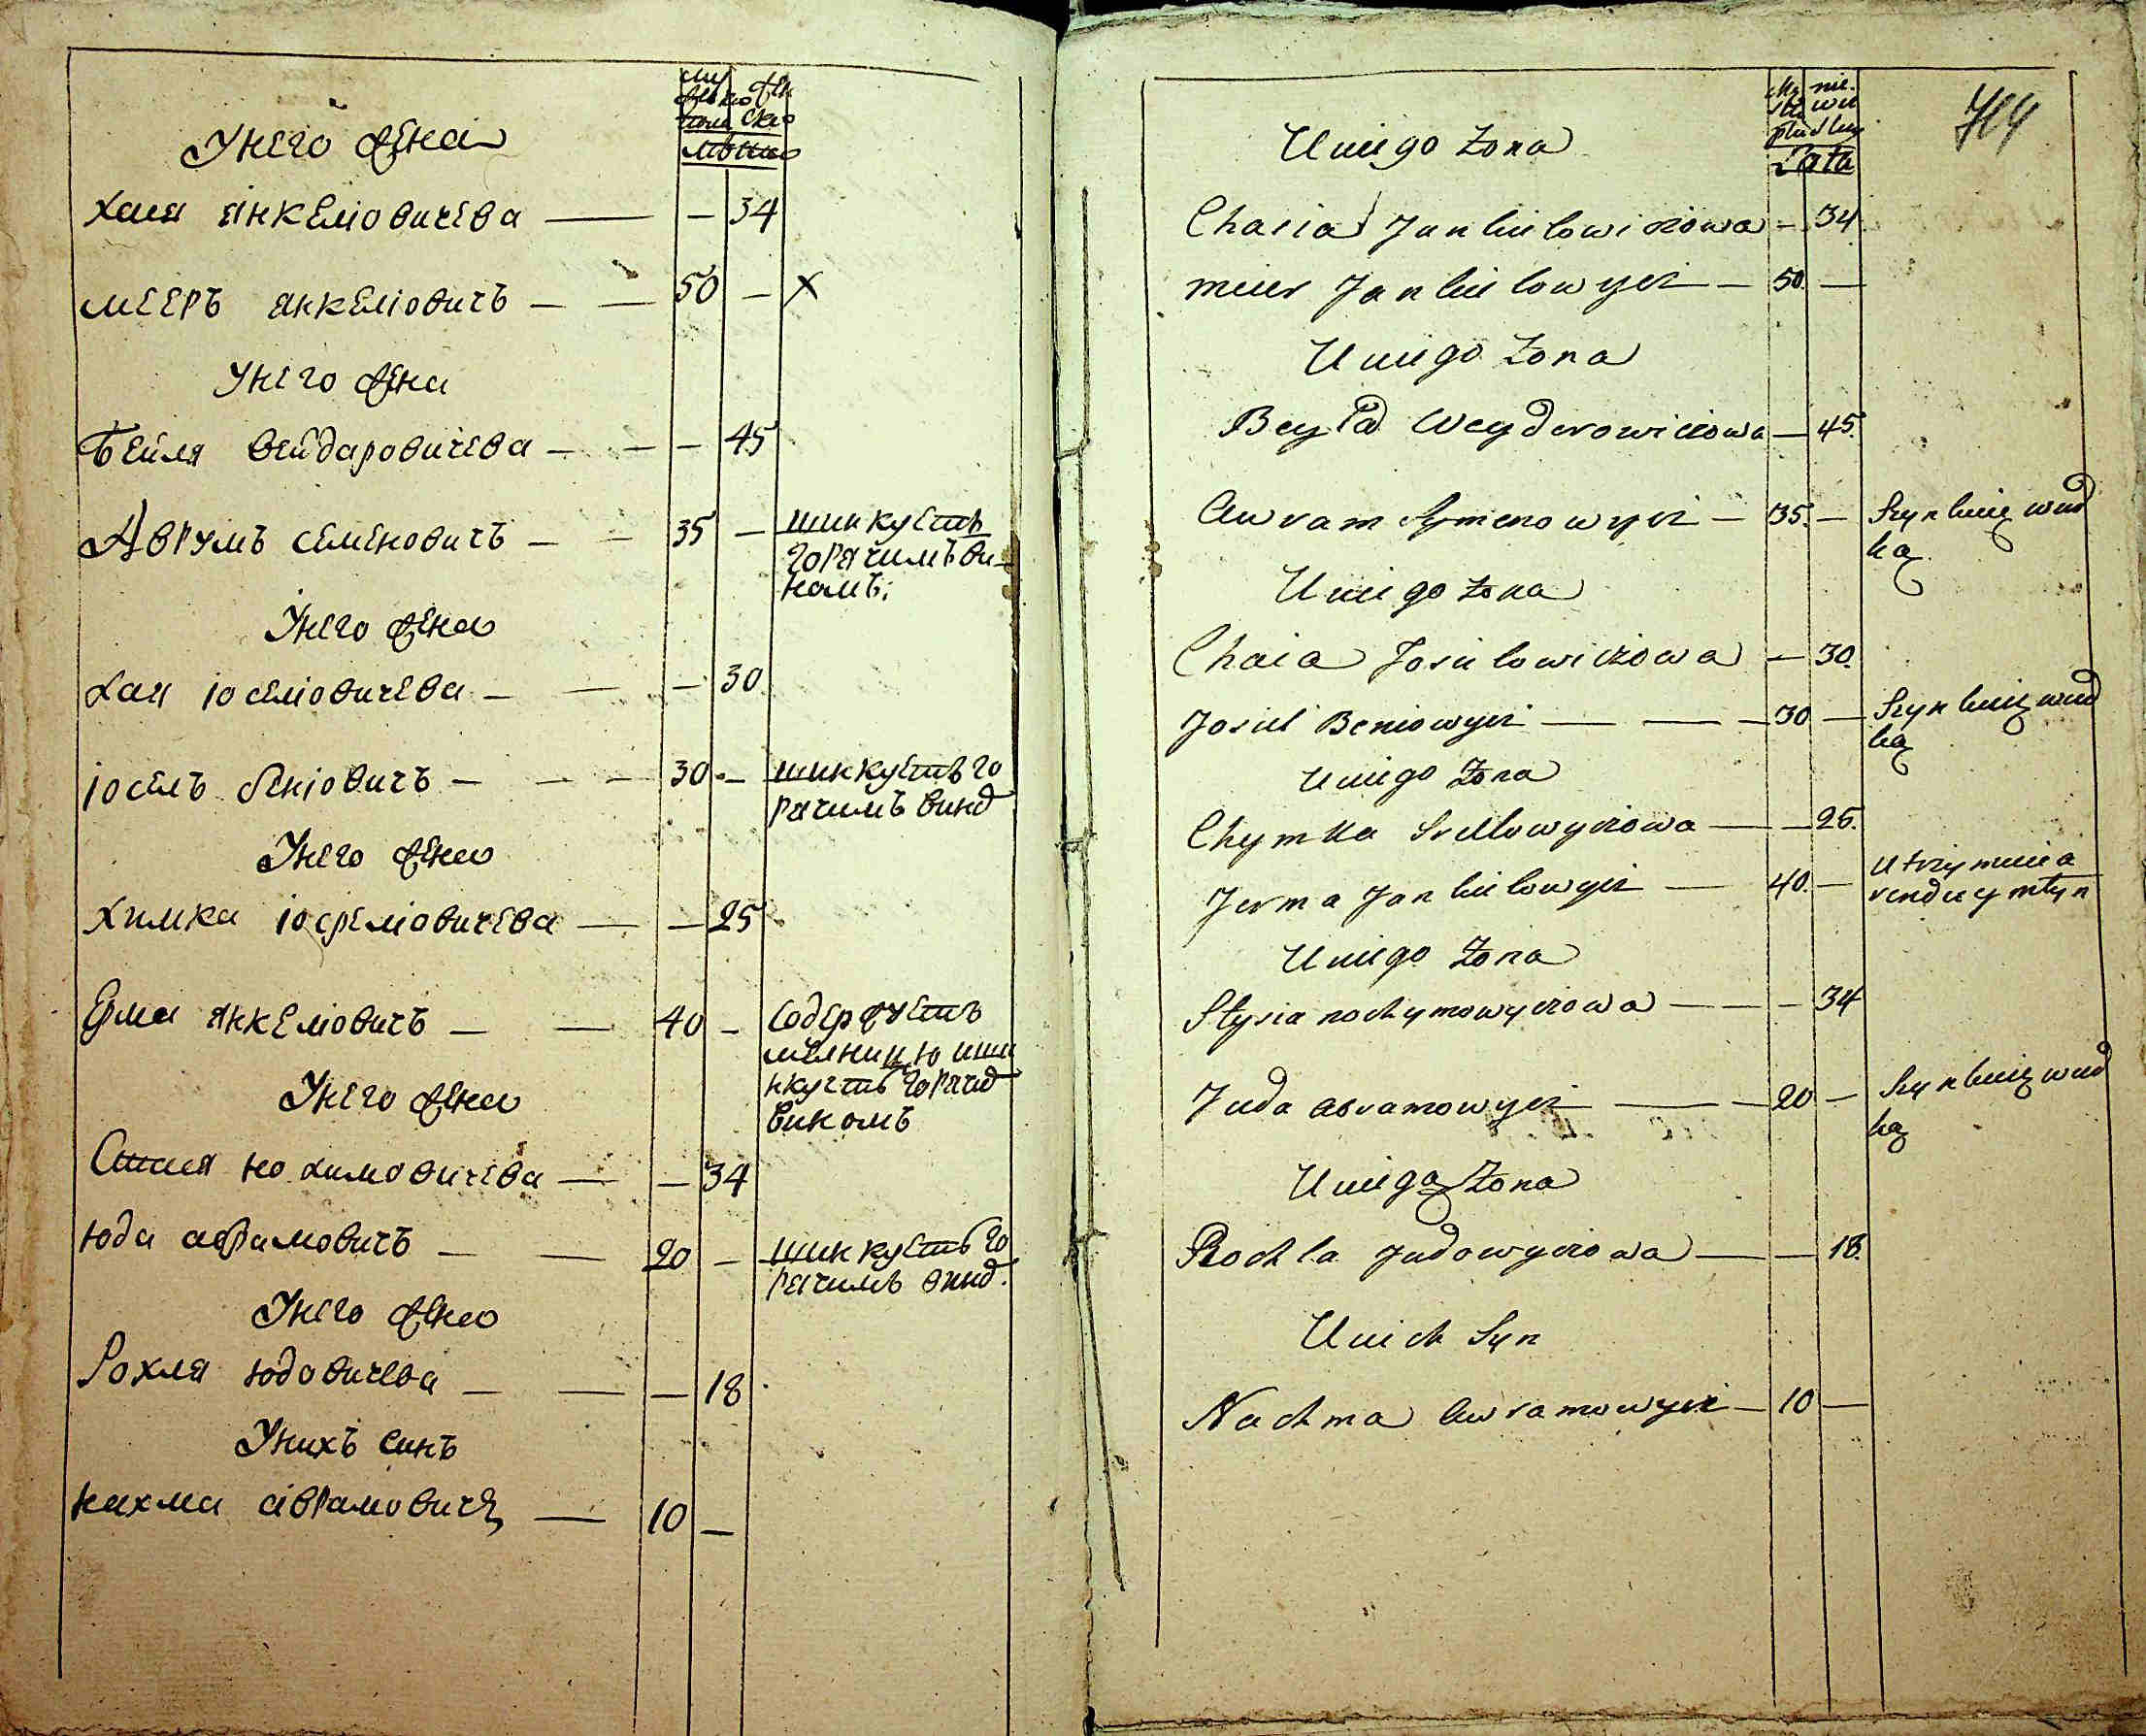 Унего жена
хая янкеліовичева — — 34
мееръ янкеліовичъ — — 50 — х
Унего жена
Бейля вейдаровичева — — — 45
Аврумъ семеновичъ — — 35 — шинкуетъ
горячимъ ви-
номъ;
Унего жена
хая іоселіовичева — — — 30
іоселъ беніовичъ — — — 30 — шинкуетъ го
рячимъ вино
Унего жена
химка іосреліовичева — — 25
Ерма янкеліовичъ — — 40 — Содержуетъ
мелницю и ши
нкуетъ горячи
вином ъ
Унего жена
Стися нохимовичева — — 34
юда аврамовичъ — — 20 — шинкуетъ го
рячимъ вино.
Унего жена
Рохля юдовичева — — — 18
Унихъ синъ
нахма аврамовичъ — 10 —
mę nie-
skie wie
płud lug
Lata
Uniego Zona
Chasia Jankielowiczowa — 34
meier Jankielowycz — 50. —
Uniego Zona
Beyla Weyderowiczowa — 45.
Awram Symenowycz — 35. — Szynkuię wud
ką
Uniego Zona
Chaia Josielowiczowa — 30.
Josiel Beniowycz — — 30 — Szynkuię wud
ką
Uniego Zona
Chymka Srellowyczowa — — 25.
Jerma Jankielowycz — 40. — Utrzymuie a
rendu y młyn
Uniego Zona
Stysia nochymowyczowa — — 34
Juda abramowycz — — 20 — Szynkuię wud
ką
Uniego Zona
Rochla Judowyczowa — — 18.
Unich Syn
Nachma Awramowycz — 10 —